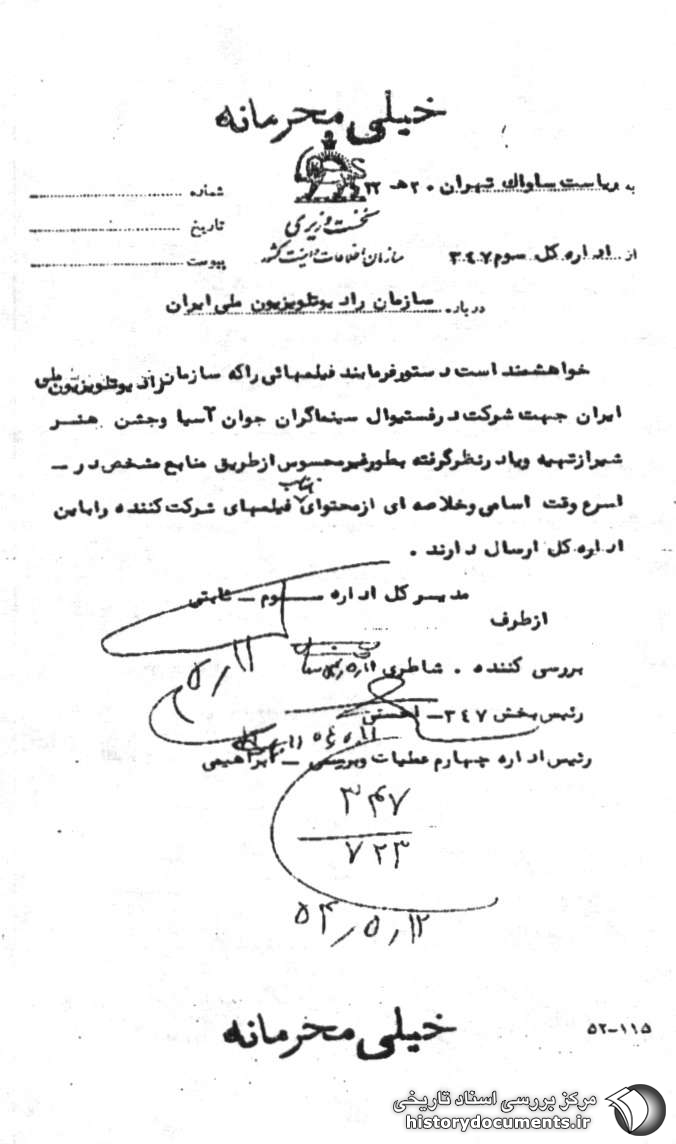 خیلی محرمانه
به ریاست ساواك تهران ۲۰ هـ ۲۲
شماره
نخست وزیری
تاریخ
سازمان اطلاعات و امنیت کشور
از اداره کل سوم ۳٤۷
پیوست
درباره سازمان رادیوتلویزیون ملی ایران
خواهشمند است دستورفرمایند فیلمهائی راکه سازمان رادیوتلویزیون ملی
ایران جهت شرکت درفستیوال سینماگران جوان آسیا وجشن هنر
شیرازتهیه ویادرنظرگرفته بطورغیرمحسوس ازطریق منابع مشخص در –
اسرع وقت اسامی وخلاصه ای ازمحتوای فیلمهای شرکت کننده راباین
اداره کل ارسال دارند .
مدیرکل اداره سوم – ثابتی
ازطرف
بررسی کننده . شاطری
رئیس بخش ۳٤۷ –
رئیس اداره چهارم عملیات وبررسی – ابراهیمی
۳۴۷
۷۲۳
۵۴٫۵٫۱۲
خیلی محرمانه
۵۲-۱۱۵
مرکز بررسی اسناد تاریخی
historydocuments.ir